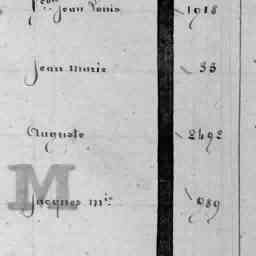 Jean Louis 1918
Jean Marie 33
Auguste 2492
Jacques Mie 989
M